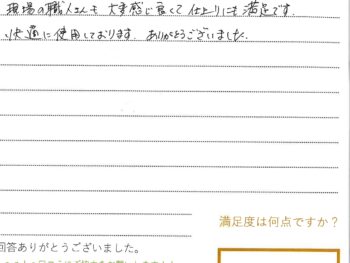 現場の職人さんも 大変感じ良くて 仕上りにも 満足です。
快適に使用しております。 ありがとうございました。
満足度は何点ですか？
回答ありがとうございました。